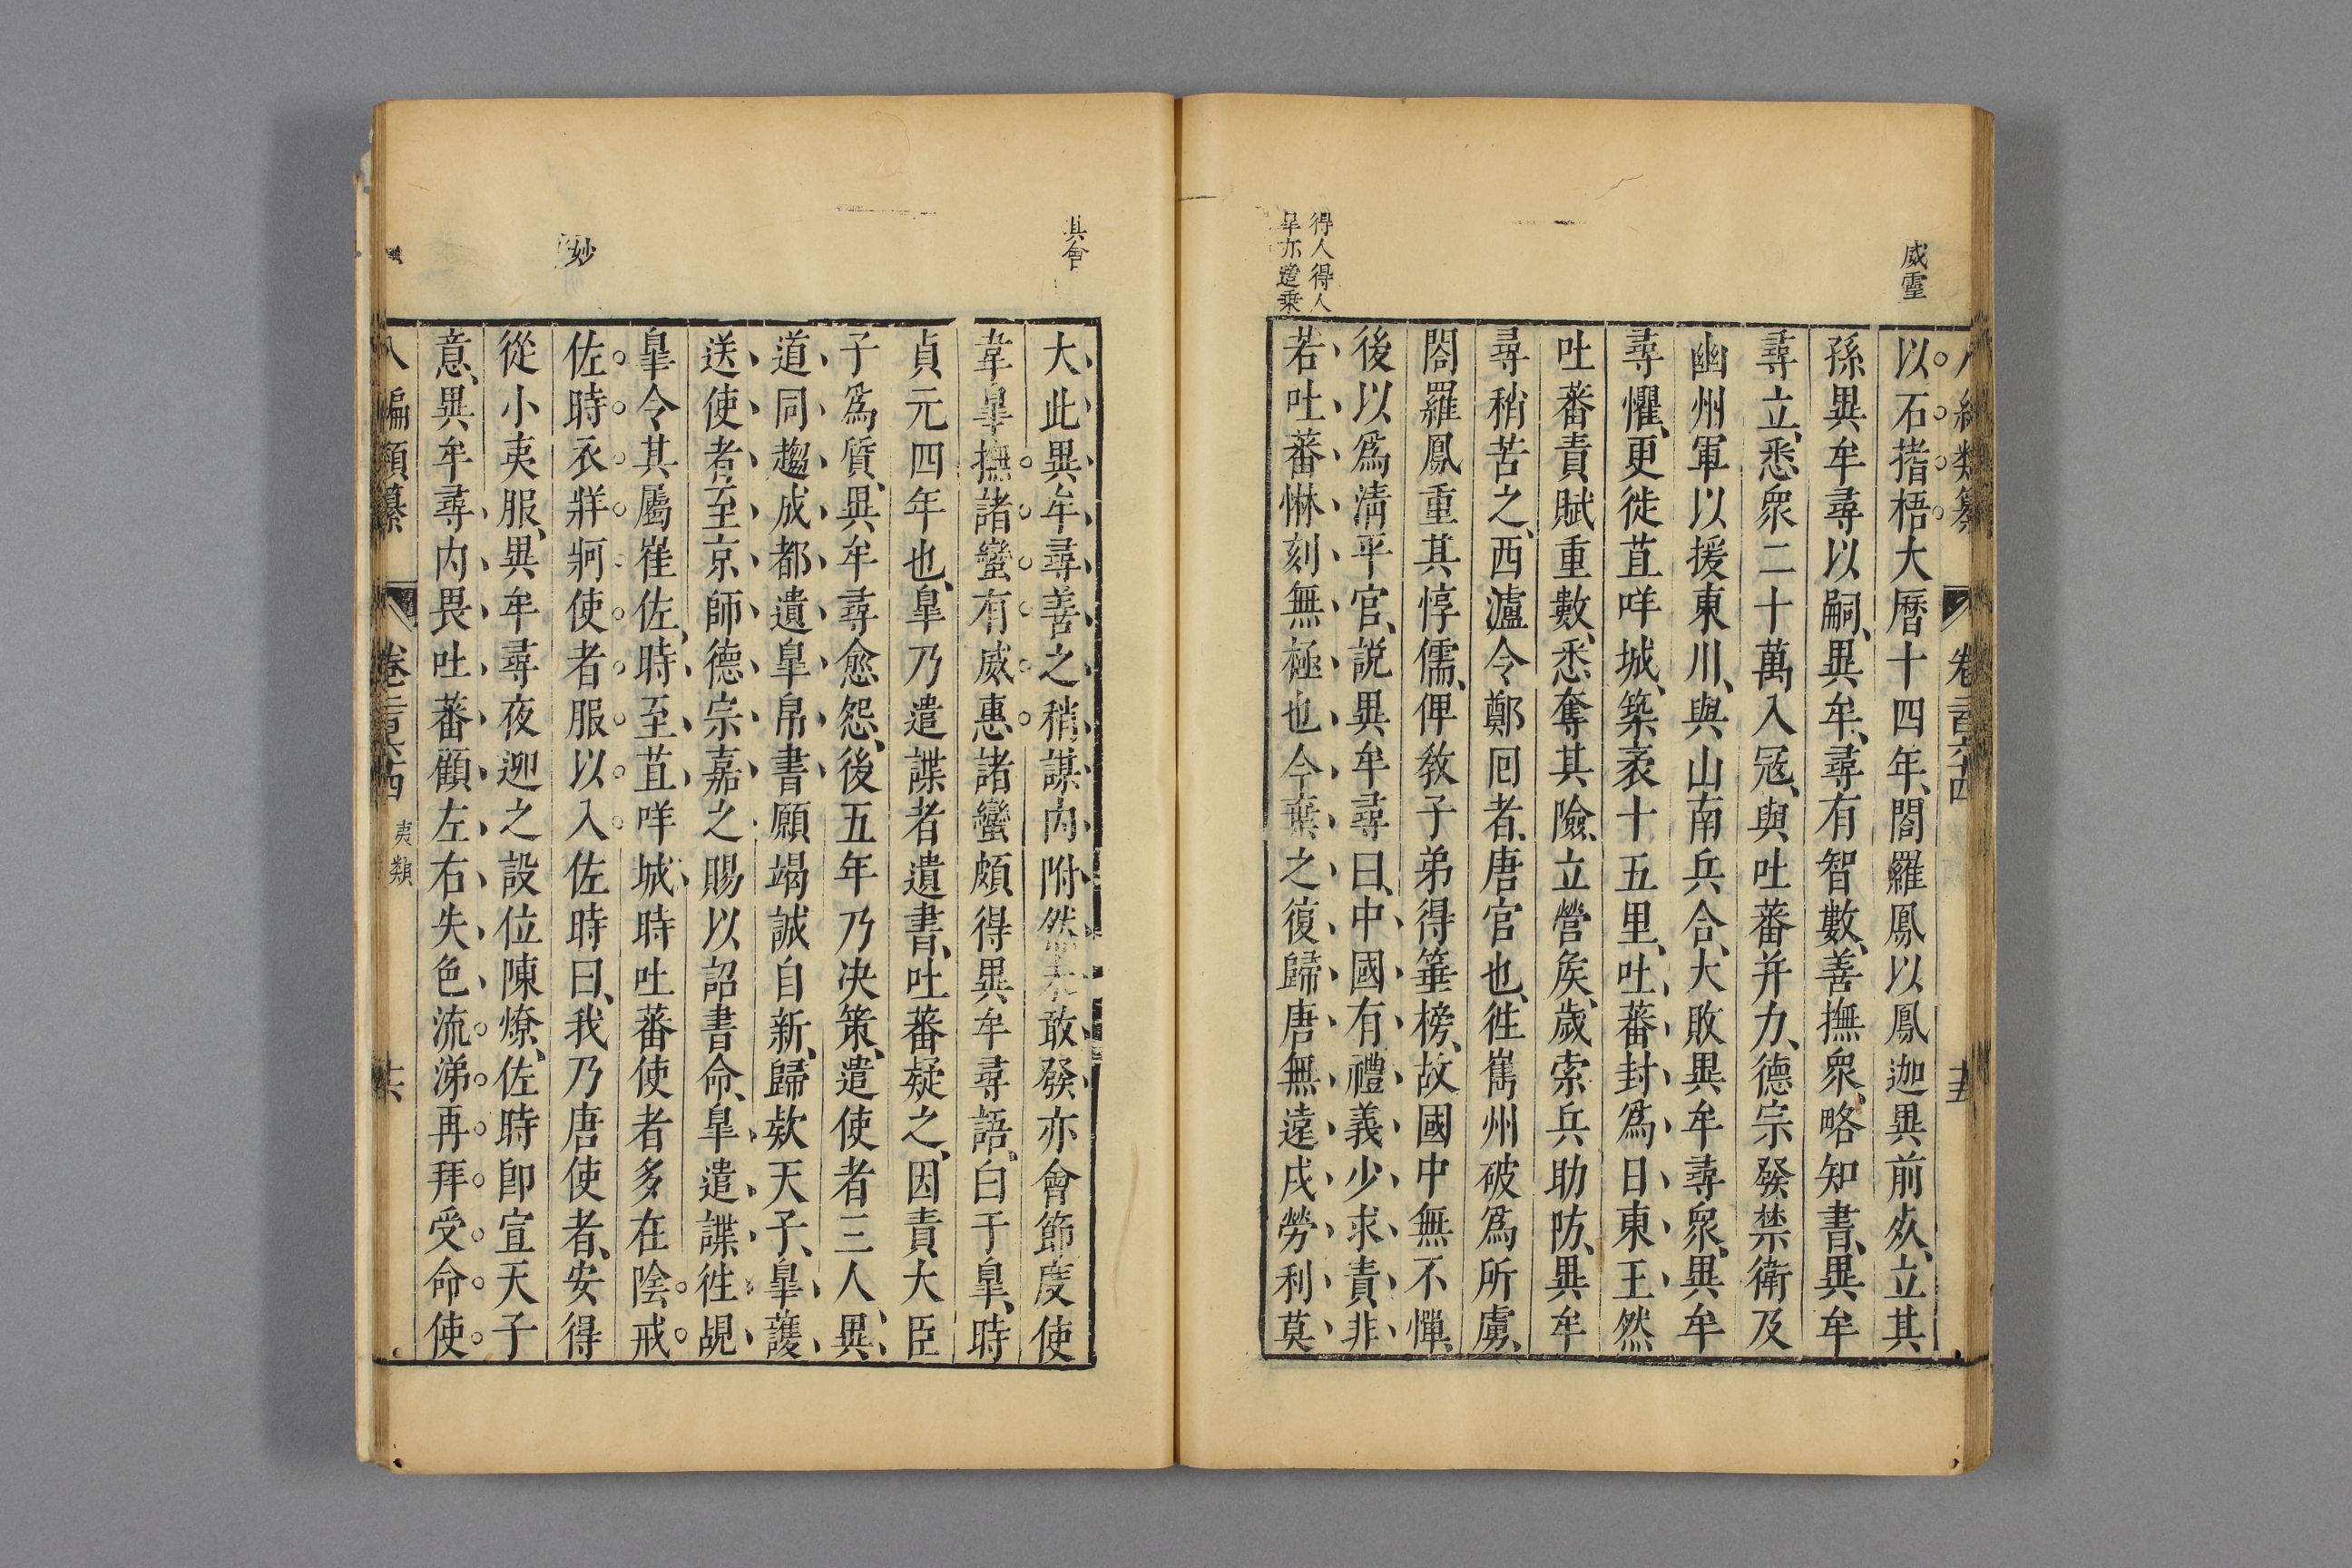 威靈
以石搘梧大曆十四年閤羅鳳以鳳迦異前死立其
孫異牟尋以嗣異牟尋有智數善撫衆略知書異牟
尋立悉衆二十萬入寇與吐蕃并力德宗發禁衛及
幽州軍以援東川與山南兵合大敗異牟尋衆異牟
尋懼更徙苴咩城築袤十五里吐蕃封爲日東王然
吐蕃責賦重數悉奪其險立營矦歲索兵助防異牟
尋稍苦之西瀘令鄭囘者唐官也徃嶲州破爲所虜
閤羅鳳重其惇儒俾敎子弟得箠榜故國中無不憚
後以爲淸平官說異牟尋曰中國有禮義少求責非
若吐蕃惏刻無極也今棄之復歸唐無遠戍勞利莫
得人得人
卷二百六十四
十五
其會
大此異牟尋善之稍謀内附然未敢發亦會節度使
韋臯撫諸蠻有威惠諸蠻頗得異牟尋語白于臯時
貞元四年也臯乃遣諜者遺書吐蕃疑之因責大臣
子爲質異牟尋愈怨後五年乃决策遣使者三人異
道同趨成都遺臯帛書願竭誠自新歸欵天子臯護
送使者至京師德宗嘉之賜以詔書命臯遣諜徃覘
臯令其屬崔佐時至苴咩城時吐蕃使者多在陰戒
妙
佐時衣牂牁使者服以入佐時曰我乃唐使者安得
從小夷服異牟尋夜迎之設位陳燎佐時卽宣天子
意異牟尋内畏吐蕃顧左右失色流涕再拜受命使
八編類纂
卷二百六十四
夷類
十六